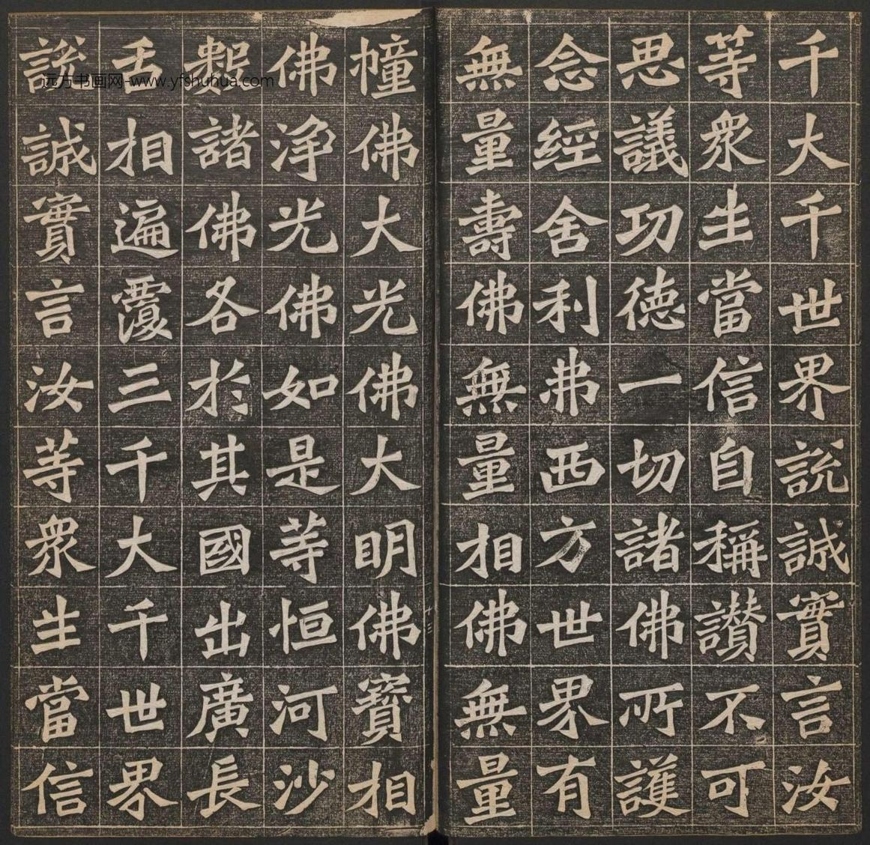 千大千世界說誠實言汝
等衆生當信自稱讚不可
思議功德一切諸佛所護
念經舍利弗西方世界有
無量壽佛無量相佛無量
幢佛大光佛大明佛寶相
佛淨光佛如是等恒河沙
數諸佛各於其國出廣長
舌相遍覆三千大千世界
說誠實言汝等衆生當信
远方书画网-www.yfshuhua.com